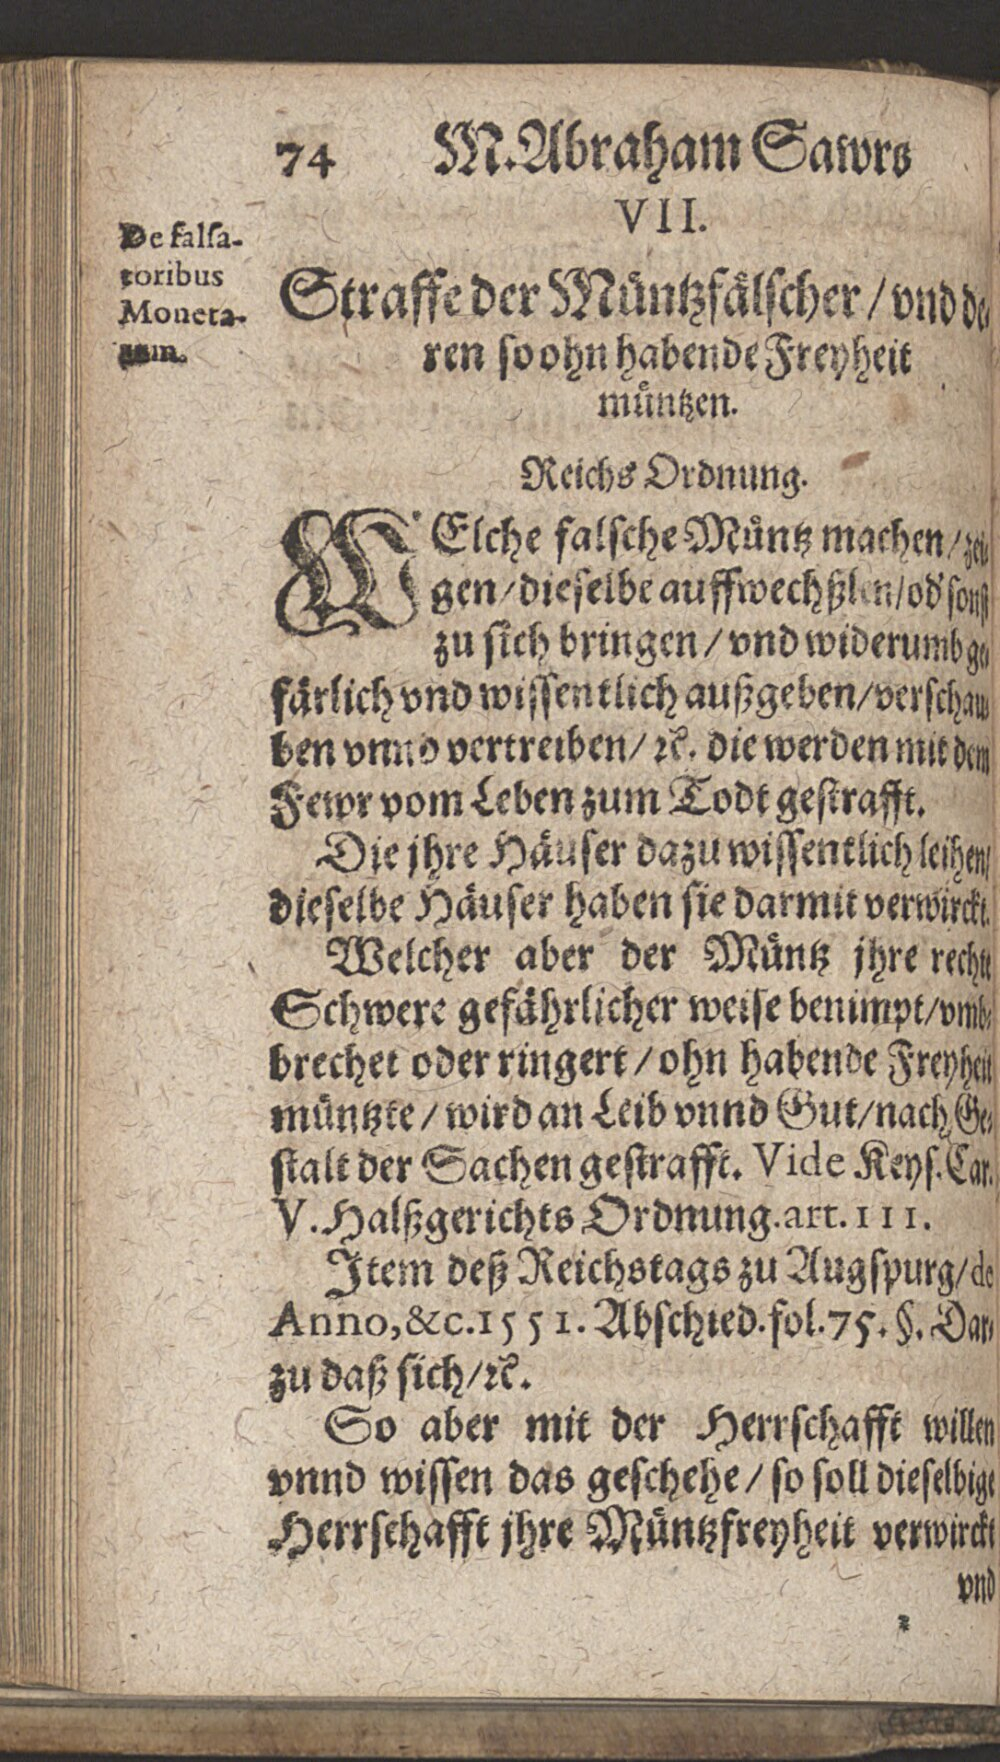 74 M. Abraham Sawrs
VII.
De falsa-
toribus
Moneta-
rum.
Straffe der Müntzfälscher / vnd de-
ren so ohn habende Freyheit
müntzen.
Reichs Ordnung.
WElche falsche Müntz machen / zei-
gen / dieselbe auffwechßlen / od' sonst
zu sich bringen / vnd widerumb ge-
färlich vnd wissentlich außgeben / verschaw
ben vnnd vertreiben / ꝛc. die werden mit dem
Fewr vom Leben zum Todt gestrafft.
Die jhre Häuser dazu wissentlich leihen /
dieselbe Häuser haben sie darmit verwirckt.
Welcher aber der Müntz jhre rechte
Schwere gefährlicher weise benimpt / vmb-
brechet oder ringert / ohn habende Freyheit
müntzte / wird an Leib vnnd Gut / nach Ge-
stalt der Sachen gestrafft. Vide Keys. Car.
V. Halßgerichts Ordnung. art. 111.
Item deß Reichstags zu Augspurg / de
Anno, &c. 1551. Abschied. fol. 75. §. Dar-
zu daß sich / ꝛc.
So aber mit der Herrschafft willen
vnnd wissen das geschehe / so soll dieselbige
Herrschafft jhre Müntzfreyheit verwirckt
vnd